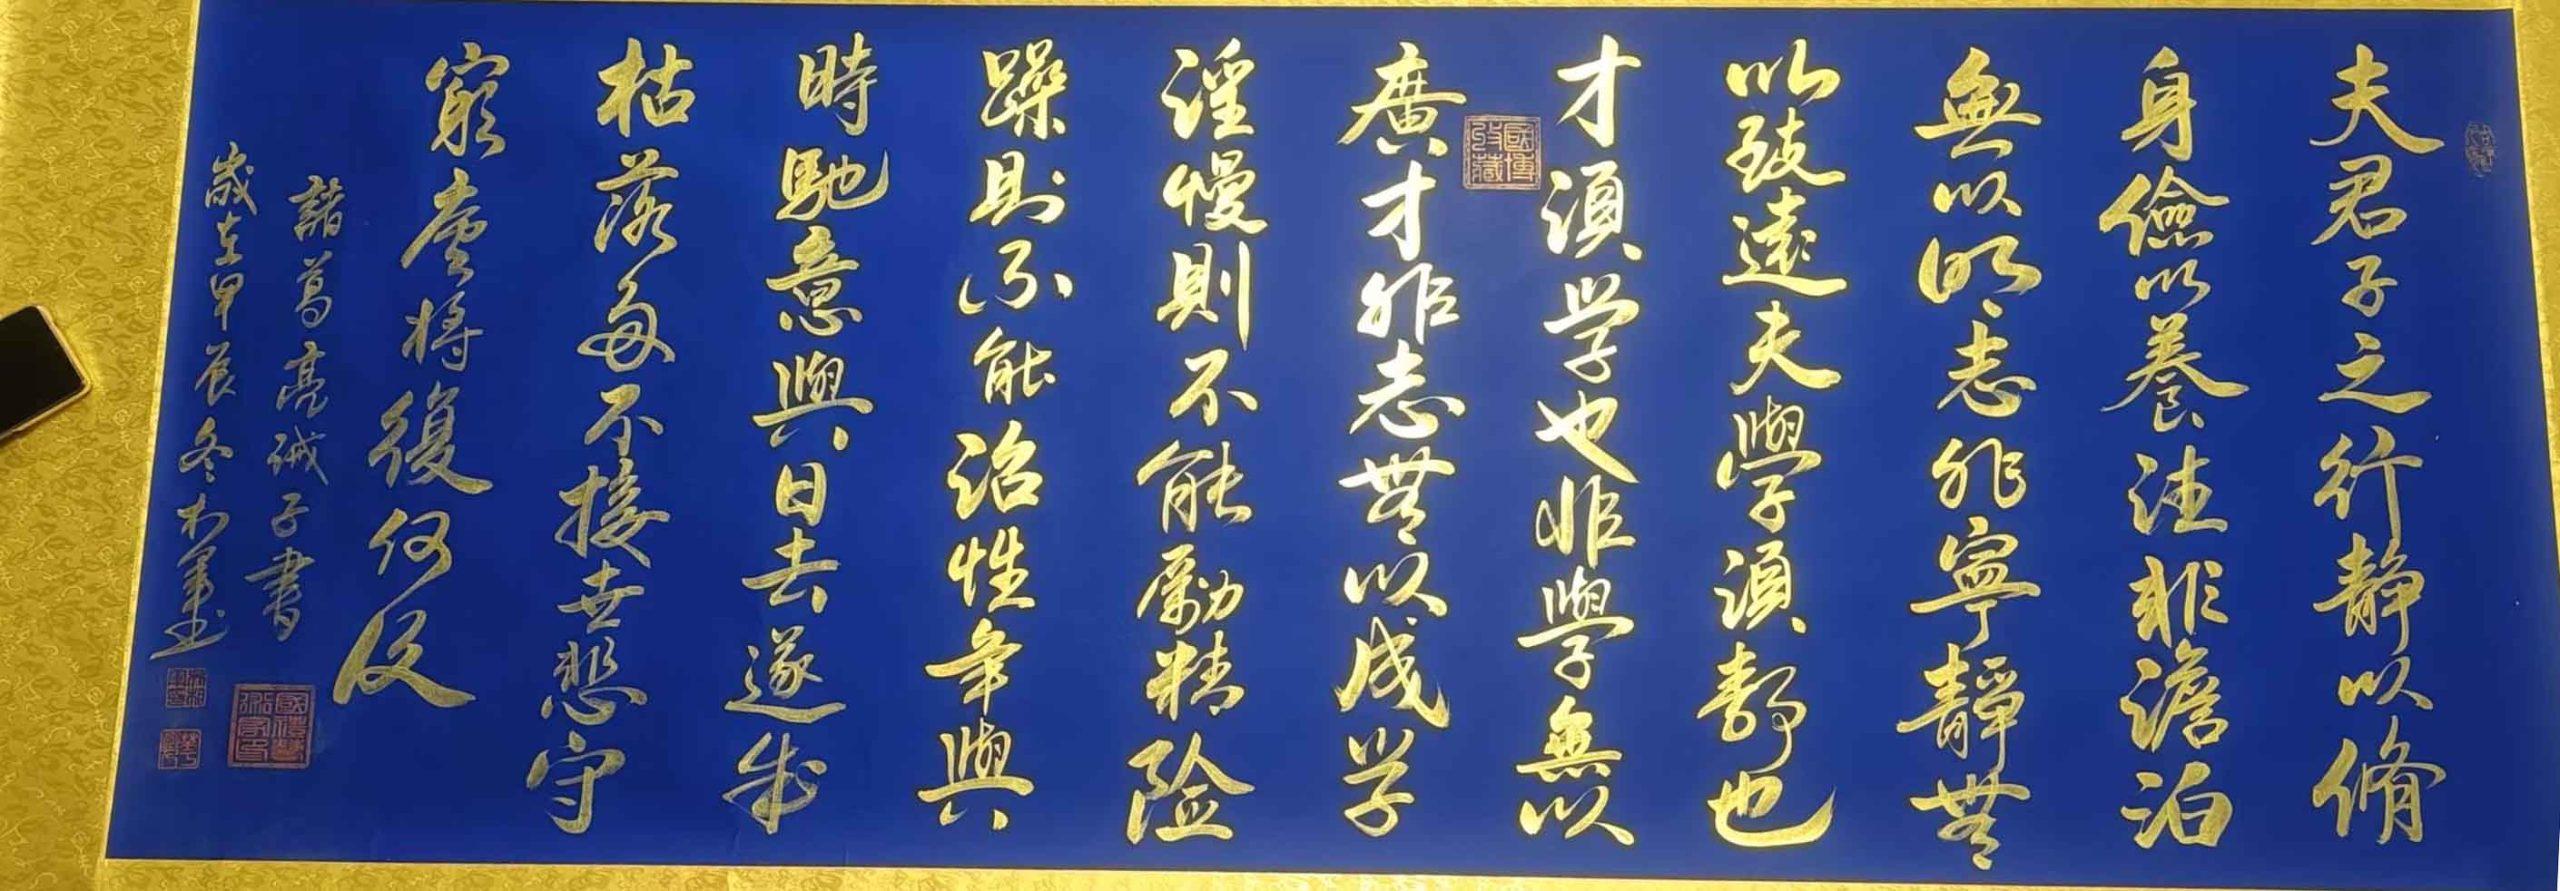 夫君子之行静以脩
身儉以養德非澹泊
無以明志非寧靜無
以致遠夫學須靜也
才須学也非學無以
廣才非志無以成学
淫慢則不能勵精险
躁則不能治性年與
時馳意與日去遂成
枯落多不接世悲守
窮廬將復何及
諸葛亮誡子書
歲在甲辰冬
國博收藏